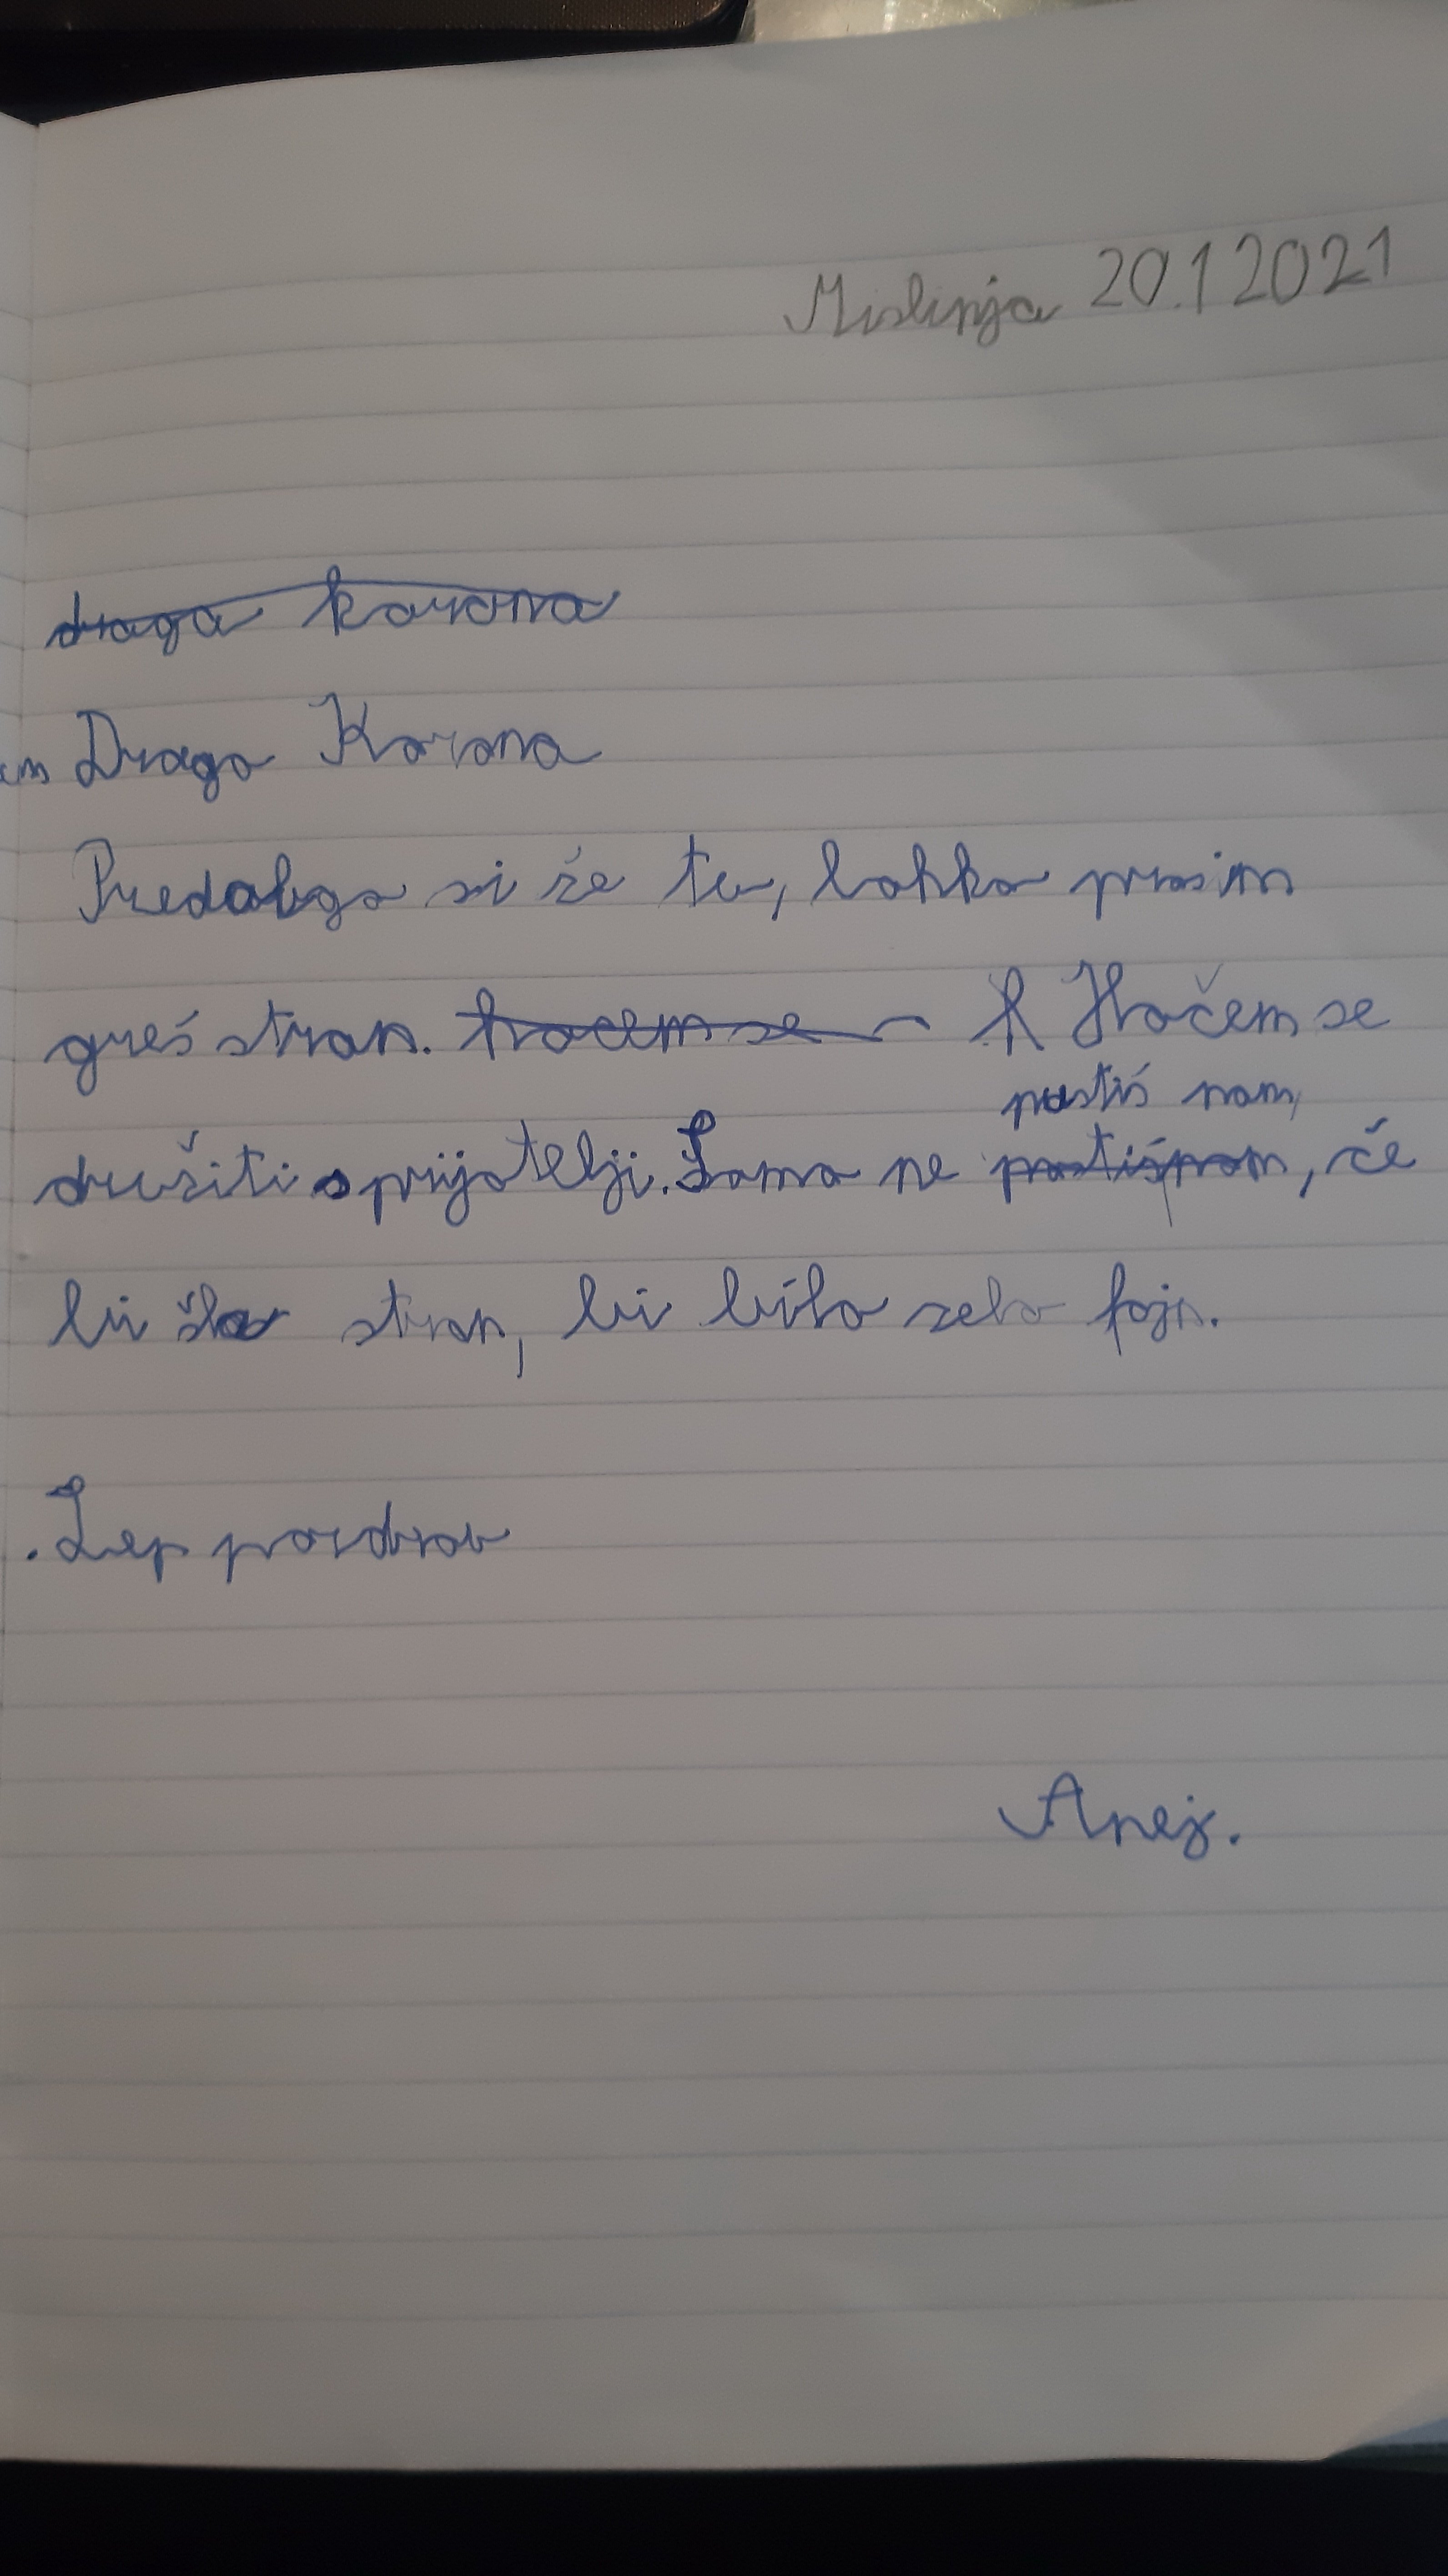 Mislinja 20.1 2021
draga korona
Draga Korona
Predolgo si že tu, lahko prosim
greš stran. hočem se Hočem se
pustiš nam,
družiti s prijatelji. Samo ne, če
bi šla stran, bi bilo zelo fajn.
Lep pozdrav
Anej.